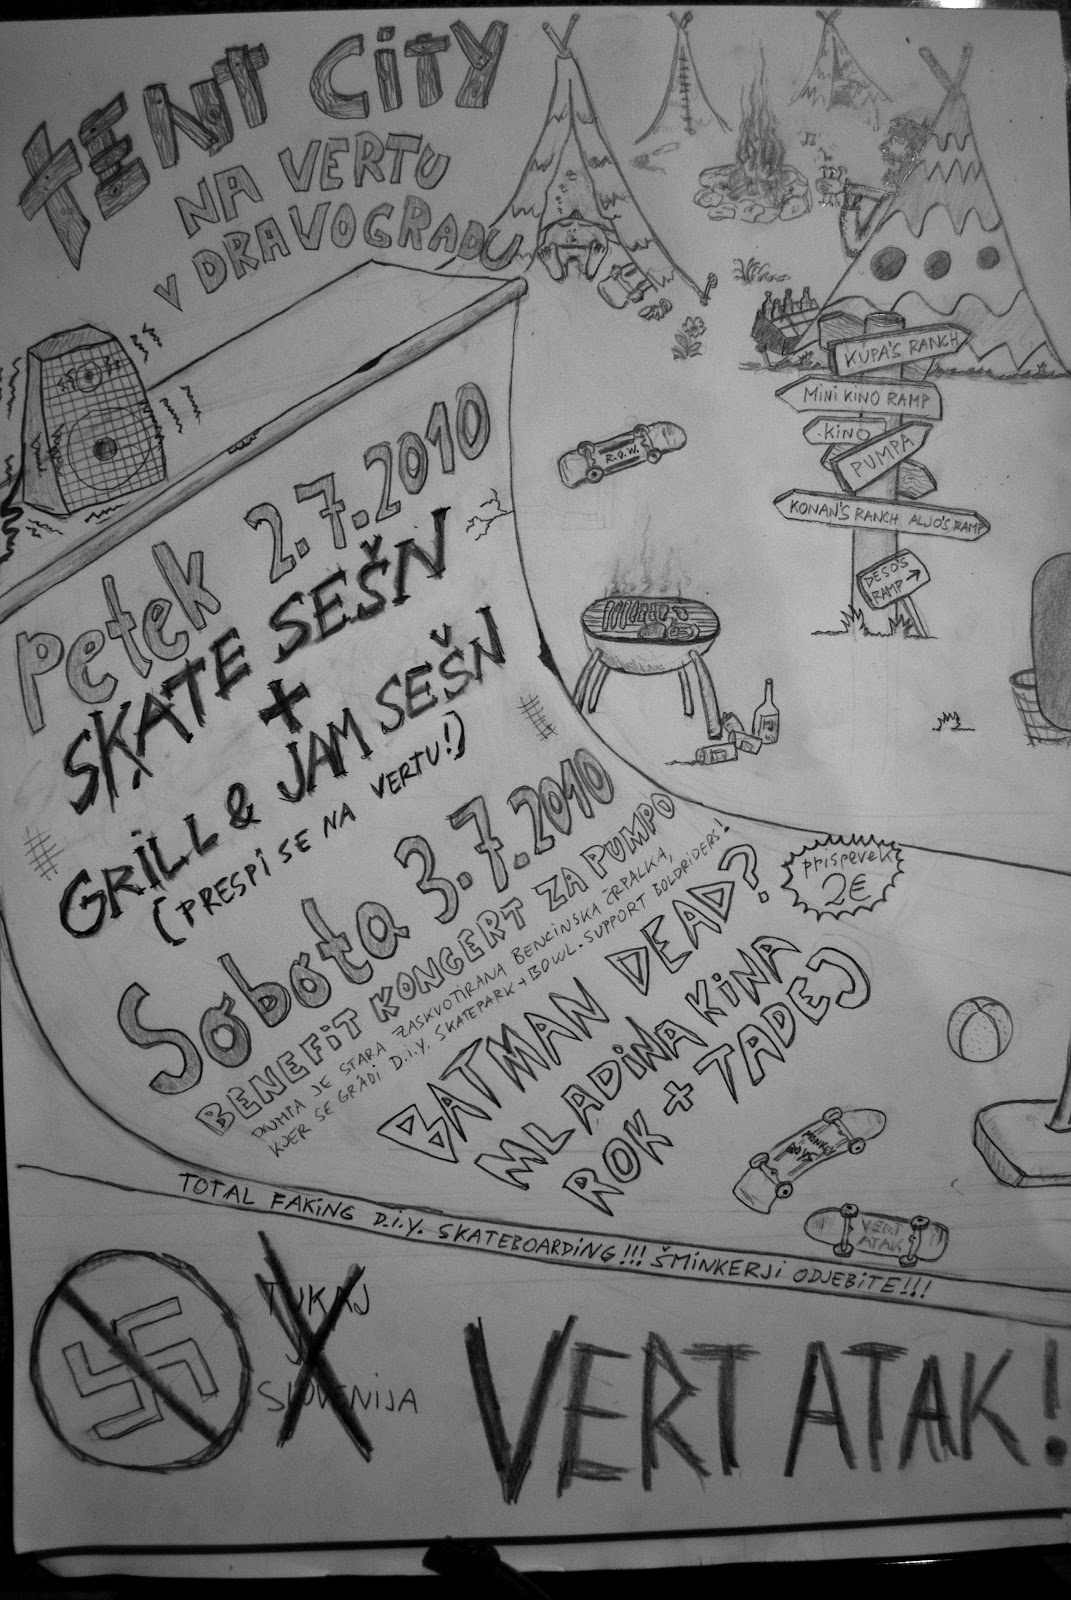 TENT CITY
NA VERTU
V DRAVOGRADU
KUPA'S RANCH
MINI KINO RAMP
KINO
PUMPA
KONAN'S RANCH ALJO'S RAMP
DESO'S
RAMP →
R.O.W.
Petek 2.7.2010
SKATE SEŠN
+
GRILL & JAM SEŠN
(PRESPI SE NA VERTU!)
Sobota 3.7.2010
BENEFIT KONCERT ZA PUMPO
PUMPA JE STARA ZASKVOTIRANA BENCINSKA ČRPALKA,
KJER SE GRADI D.I.Y. SKATEPARK + BOWL. SUPPORT BOLDRIDERS!
prispevek
2€
BATMAN DEAD?
MLADINA KINA
ROK + TADEJ
VERT
ATAK
TOTAL FAKING D.I.Y. SKATEBOARDING!!! ŠMINKERJI ODJEBITE!!!
TUKAJ
JE
SLOVENIJA
VERT ATAK!